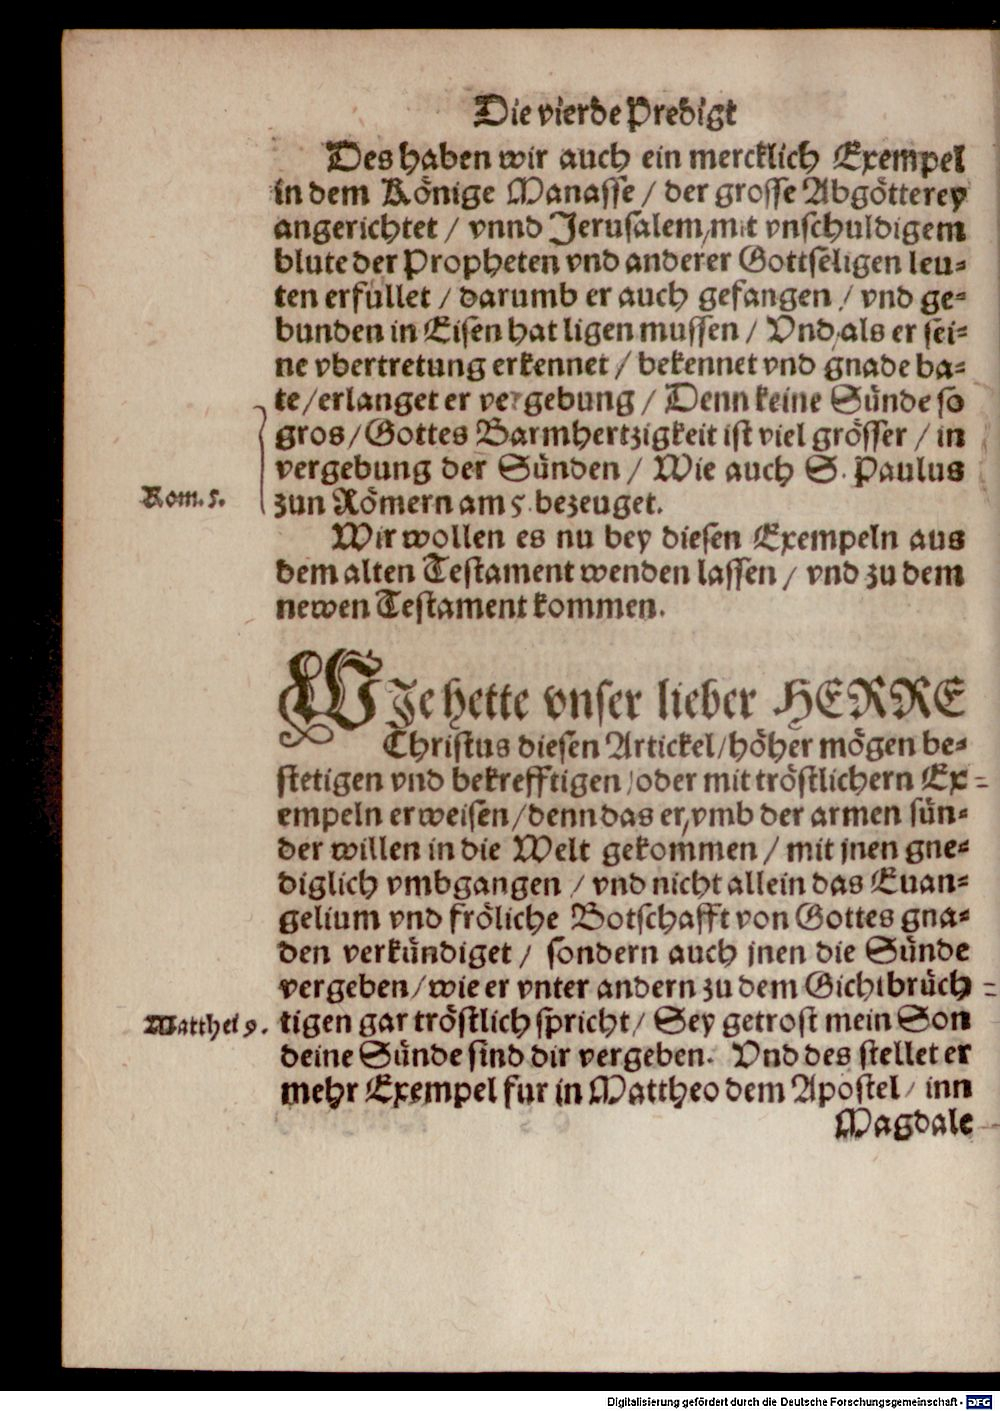 Die vierde Predigt
Des haben wir auch ein mercklich Exempel
in dem Könige Manasse / der grosse Abgötterey
angerichtet / vnnd Jerusalem, mit vnschuldigem
blute der Propheten vnd anderer Gottseligen leu-
ten erfüllet / darumb er auch gefangen / vnd ge-
bunden in Eisen hat ligen mussen / Vnd, als er sei-
ne vbertretung erkennet / bekennet vnd gnade ba-
te / erlanget er vergebung / Denn keine Sünde so
gros / Gottes Barmhertzigkeit ist viel grösser / in
vergebung der Sünden / Wie auch S. Paulus
Rom. 5.
zun Römern am 5. bezeuget.
Wir wollen es nu bey diesen Exempeln aus
dem alten Testament wenden lassen / vnd zu dem
newen Testament kommen.
WIe hette vnser lieber HERRE
Christus diesen Artickel / höher mögen be-
stetigen vnd bekrefftigen / oder mit tröstlichern Ex-
empeln erweisen / denn das er, vmb der armen sün-
der willen in die Welt gekommen / mit jnen gne-
diglich vmbgangen / vnd nicht allein das Euan-
gelium vnd fröliche Botschafft von Gottes gna-
den verkündiget / sondern auch jnen die Sünde
vergeben / wie er vnter andern zu dem Gichtbrüch-
Matthei 9.
tigen gar tröstlich spricht / Sey getrost mein Son
deine Sünde sind dir vergeben. Vnd des stellet er
mehr Exempel fur in Mattheo dem Apostel / inn
Magdale
Digitalisierung gefördert durch die Deutsche Forschungsgemeinschaft - DFG